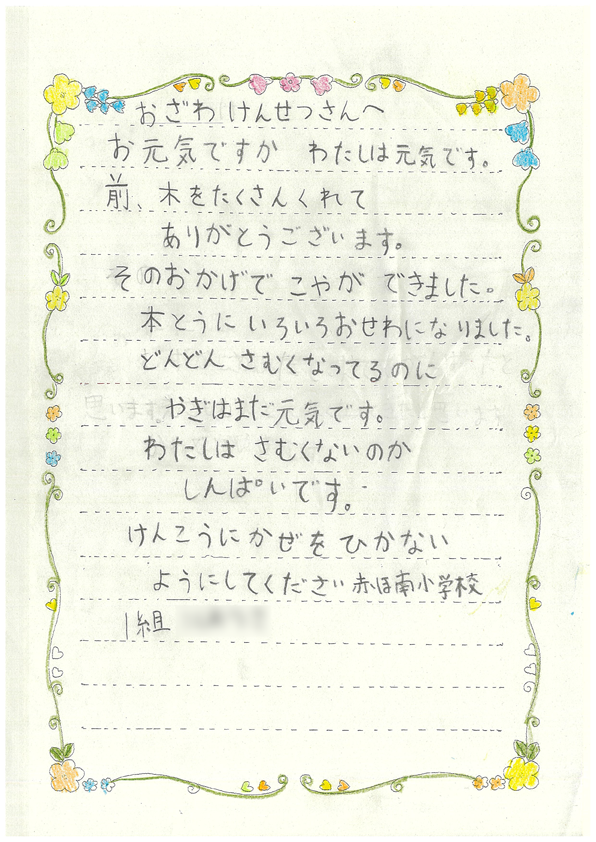 おざわけんせつさんへ
お元気ですか　わたしは元気です。
前、木をたくさんくれて
ありがとうございます。
そのおかげで こやが できました。
本とうに いろいろおせわになりました。
どんどん さむくなってるのに
やぎはまだ元気です。
わたしは さむくないのか
しんぱいです。
けんこうにかぜを ひかない
ようにしてください 赤ほ南小学校
1組